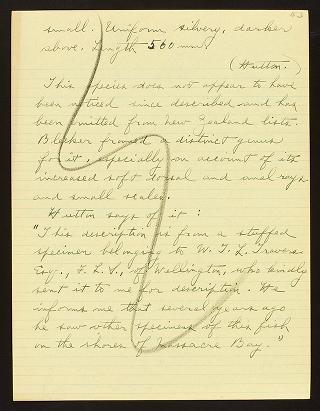 53
small. Uniform silvery, darker
above. Length 560 mm.
(Hutton.)
This species does not appear to have
been noticed since described and has
been omitted from New Zealand lists.
Bleeker framed a distinct genus
for it, especially on account of its
increased soft dorsal and anal rays
and small scales.
Hutton says of it :
"This description is from a stuffed
specimen belonging to W. T. L. Travers
Esq., F. L. S., of Wellington, who kindly
sent it to me for description. He
informs me that several years ago
he saw other specimens of this fish
on the shores of Massacre Bay."